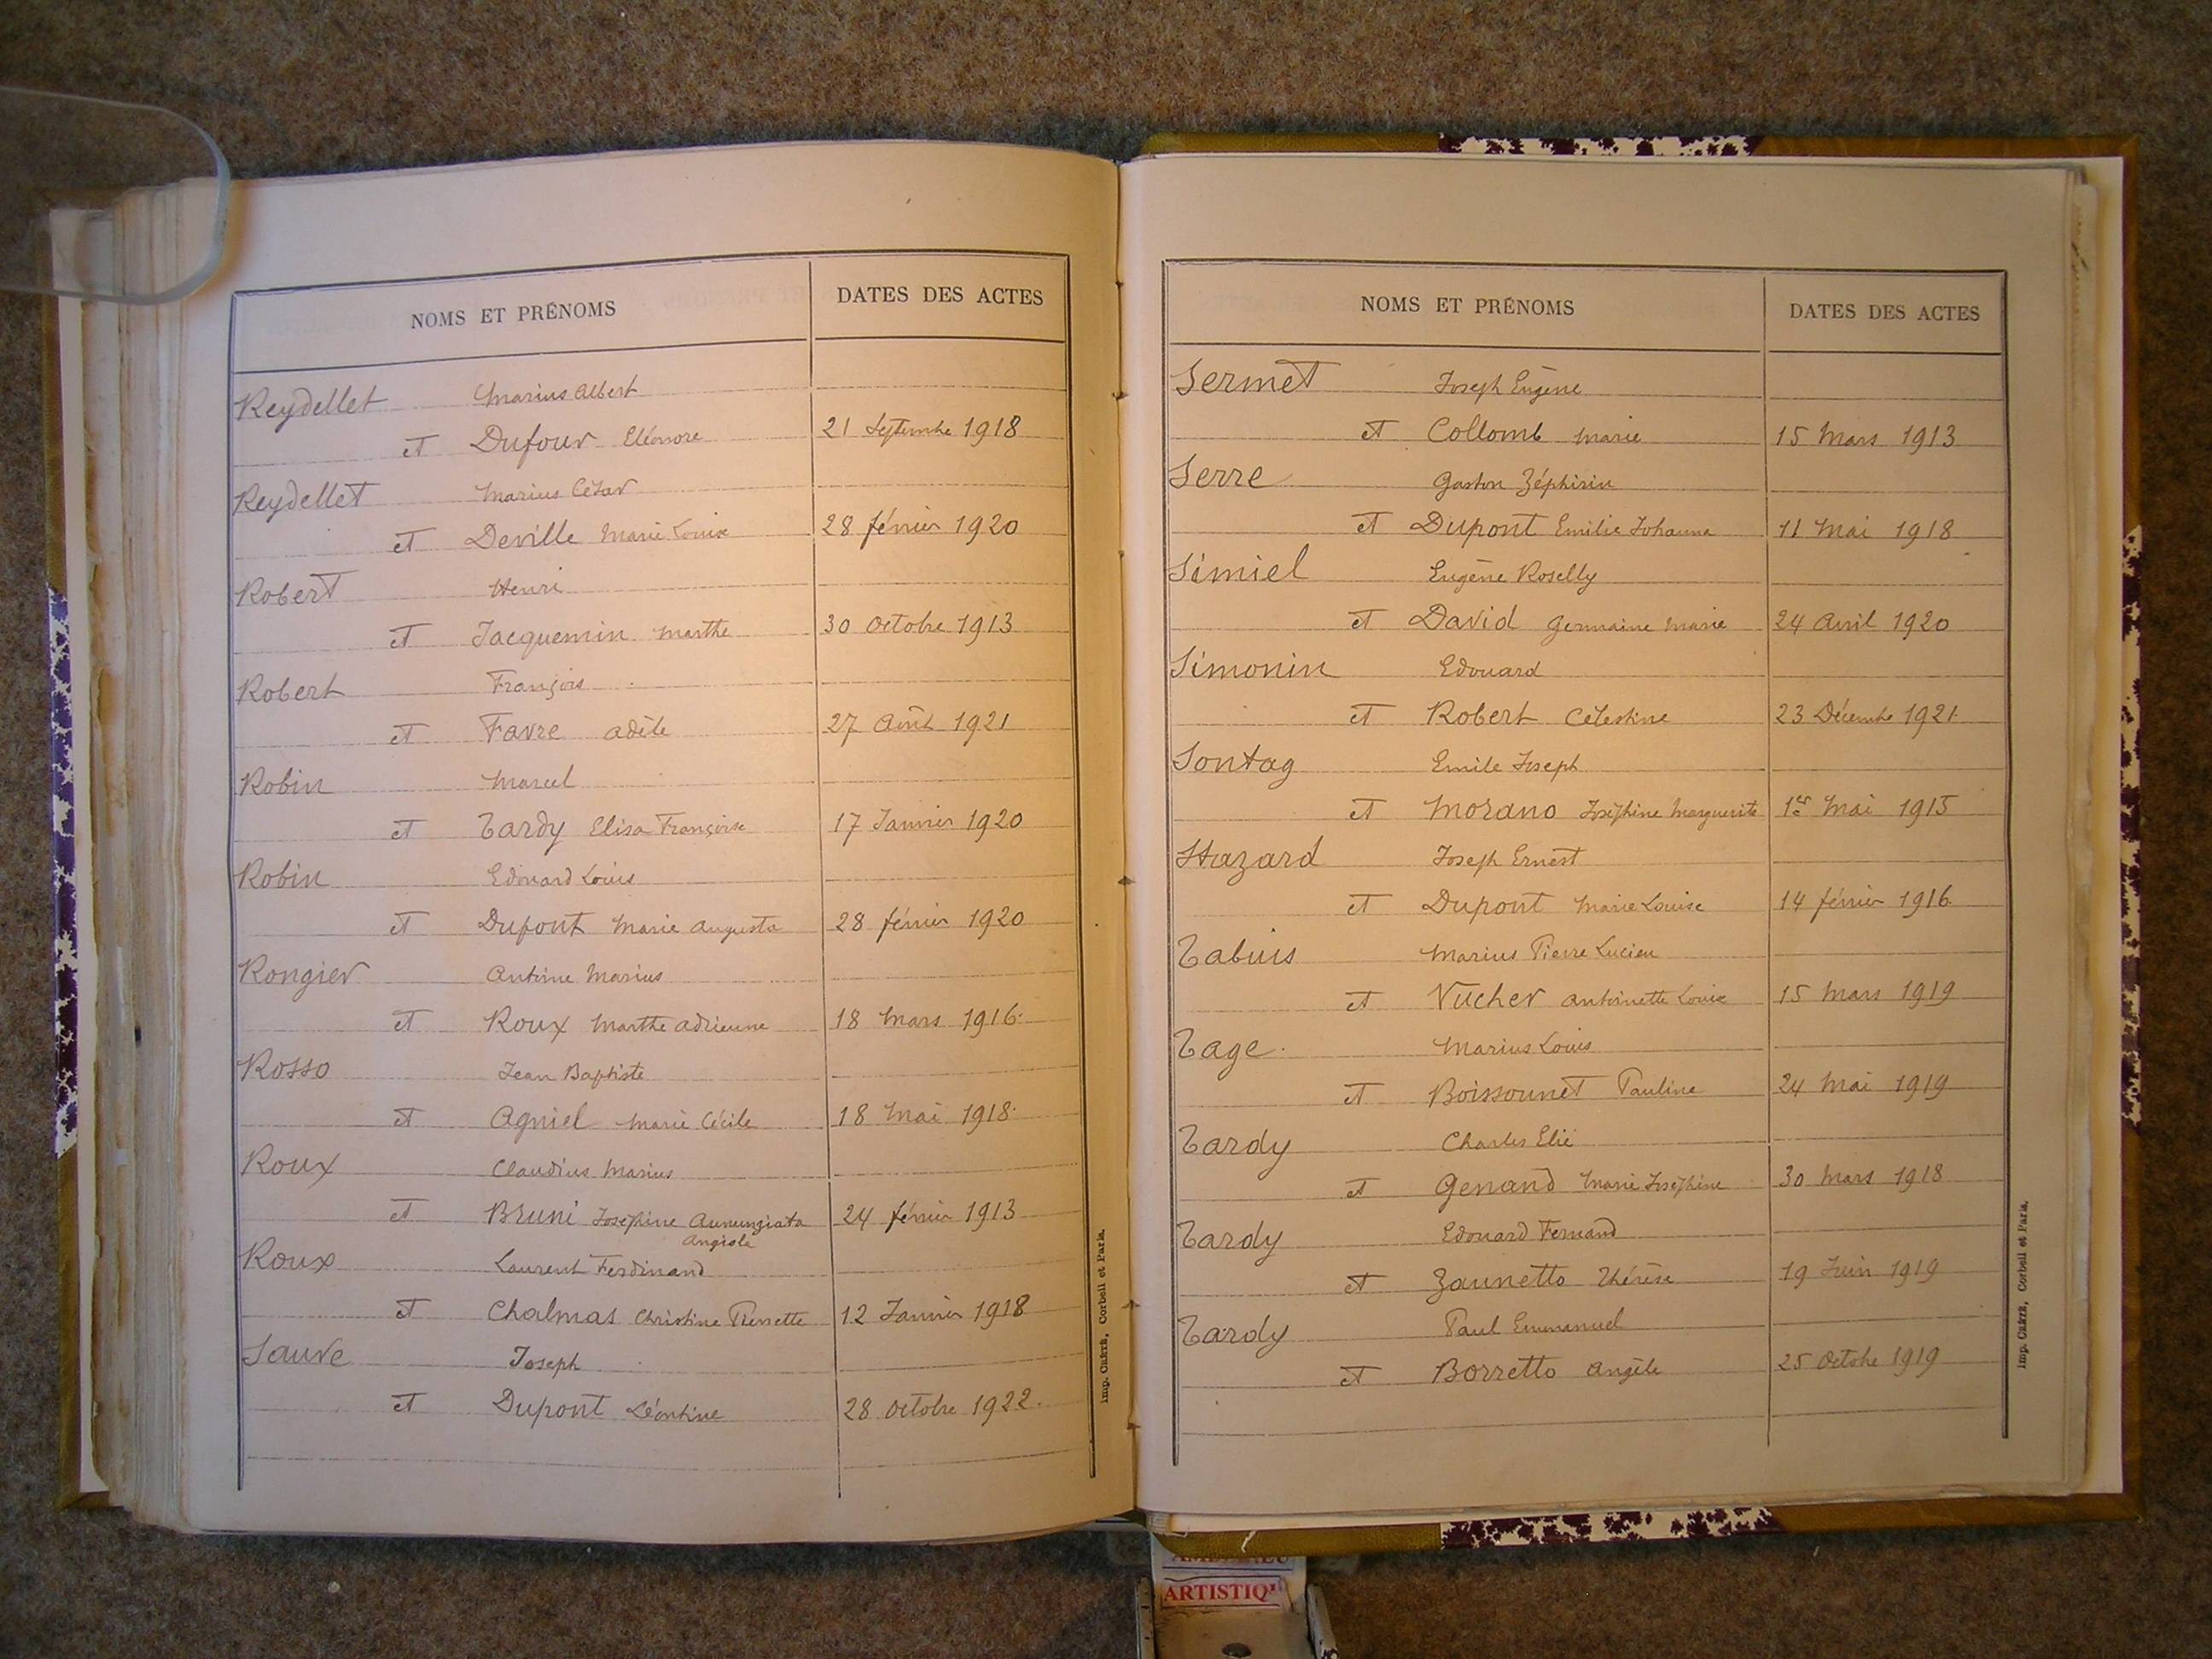 NOMS ET PRÉNOMS DATES DES ACTES
Reydellet Marius Albert
et Dufour Eléonore 21 Septembre 1918
Reydellet Marius César
et Deville Marie Louise 28 février 1920
Robert Henri
et Jacquemin Marthe 30 Octobre 1913
Robert François
et Favre Adèle 27 Août 1921
Robin Marcel
et Tardy Elisa Françoise 17 Janvier 1920
Robin Edouard Louis
et Dupont Marie Augusta 28 février 1920
Rongier Antoine Marius
et Roux Marthe Adrienne 18 Mars 1916
Rosso Jean Baptiste
et Agniel Marie Cécile 18 Mai 1918
Roux Claudius Marius
et Bruni Joséphine Annunziata 24 février 1913
Angiola
Roux Laurent Ferdinand
et Chalmas Christine Pierrette 12 Janvier 1918
Sauve Joseph
et Dupont Léontine 28 Octobre 1922.
Imp. CRÉTÉ, Corbeil et Paris.
NOMS ET PRÉNOMS DATES DES ACTES
Sermet Joseph Eugène
et Collomb Marie 15 Mars 1913
Serre Gaston Zéphirin
et Dupont Emilie Johanna 11 Mai 1918
Simiel Eugène Roselly
et David Germaine Marie 24 Avril 1920
Simonin Edouard
et Robert Célestine 23 Décembre 1921
Sontag Emile Joseph
et Morano Joséphine Marguerite 1er Mai 1915
Stazard Joseph Ernest
et Dupont Marie Louise 14 février 1916
Tabuis Marius Pierre Lucien
et Vucher Antoinette Louise 15 Mars 1919
Tage Marius Louis
et Boissounet Pauline 24 Mai 1919
Tardy Charles Elie
et Genand Marie Joséphine 30 Mars 1918
Tardy Edouard Fernand
et Zaunetto Thérèse 19 Juin 1919
Tardy Paul Emmanuel
et Borretto Angèle 25 Octobre 1919
Imp. CRÉTÉ, Corbeil et Paris.